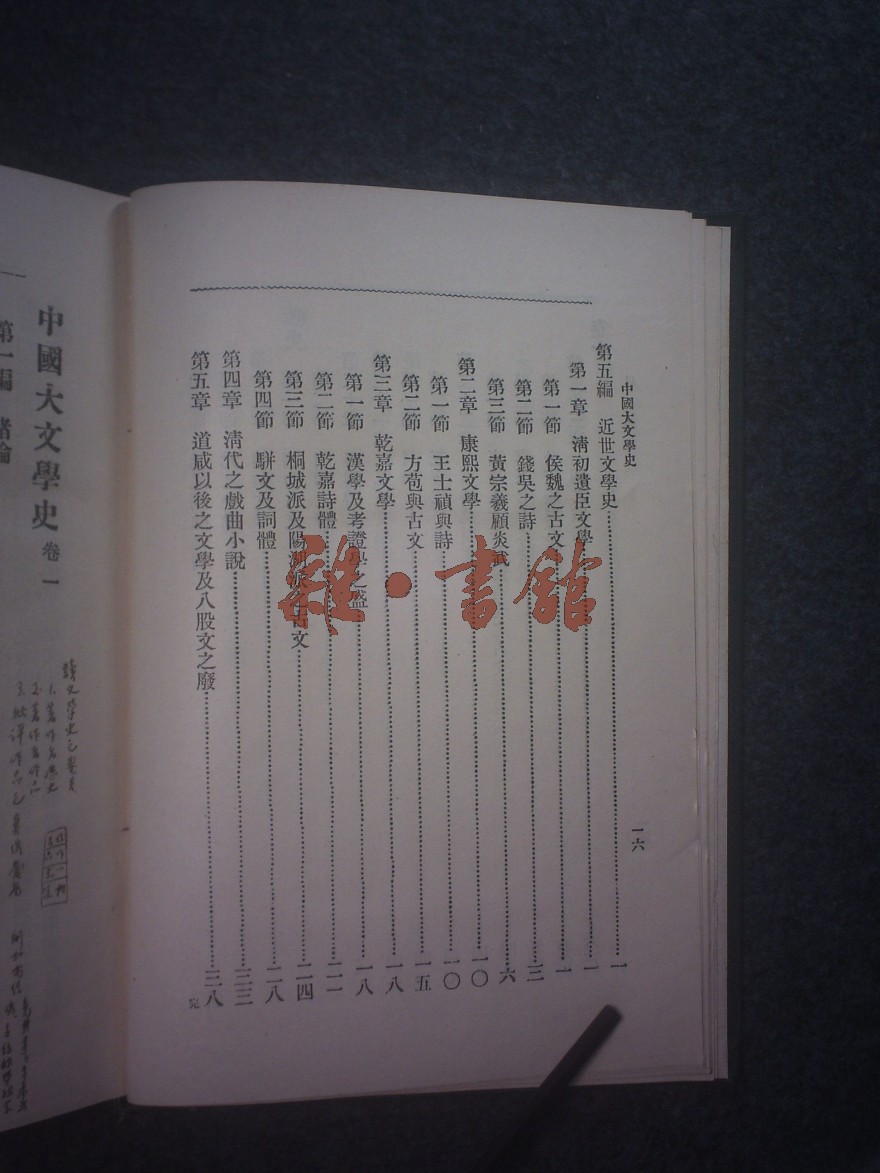 中國大文學史
一六
第五編 近世文學史 一
第一章 淸初遺臣文學 一
第一節 侯魏之古文 一
第二節 錢吳之詩 三
第三節 黃宗羲顧炎武 六
第二章 康熙文學 一〇
第一節 王士禎與詩 一〇
第二節 方苞與古文 一五
第三章 乾嘉文學 一八
第一節 漢學及考證學之盛 一八
第二節 乾嘉詩體
第三節 桐城派及陽湖派之古文 二四
第四節 駢文及詞體 二八
第四章 淸代之戲曲小說 三三
第五章 道咸以後之文學及八股文之廢 三八
完
雜·書館
中國大文學史 卷一
第一編 緒論